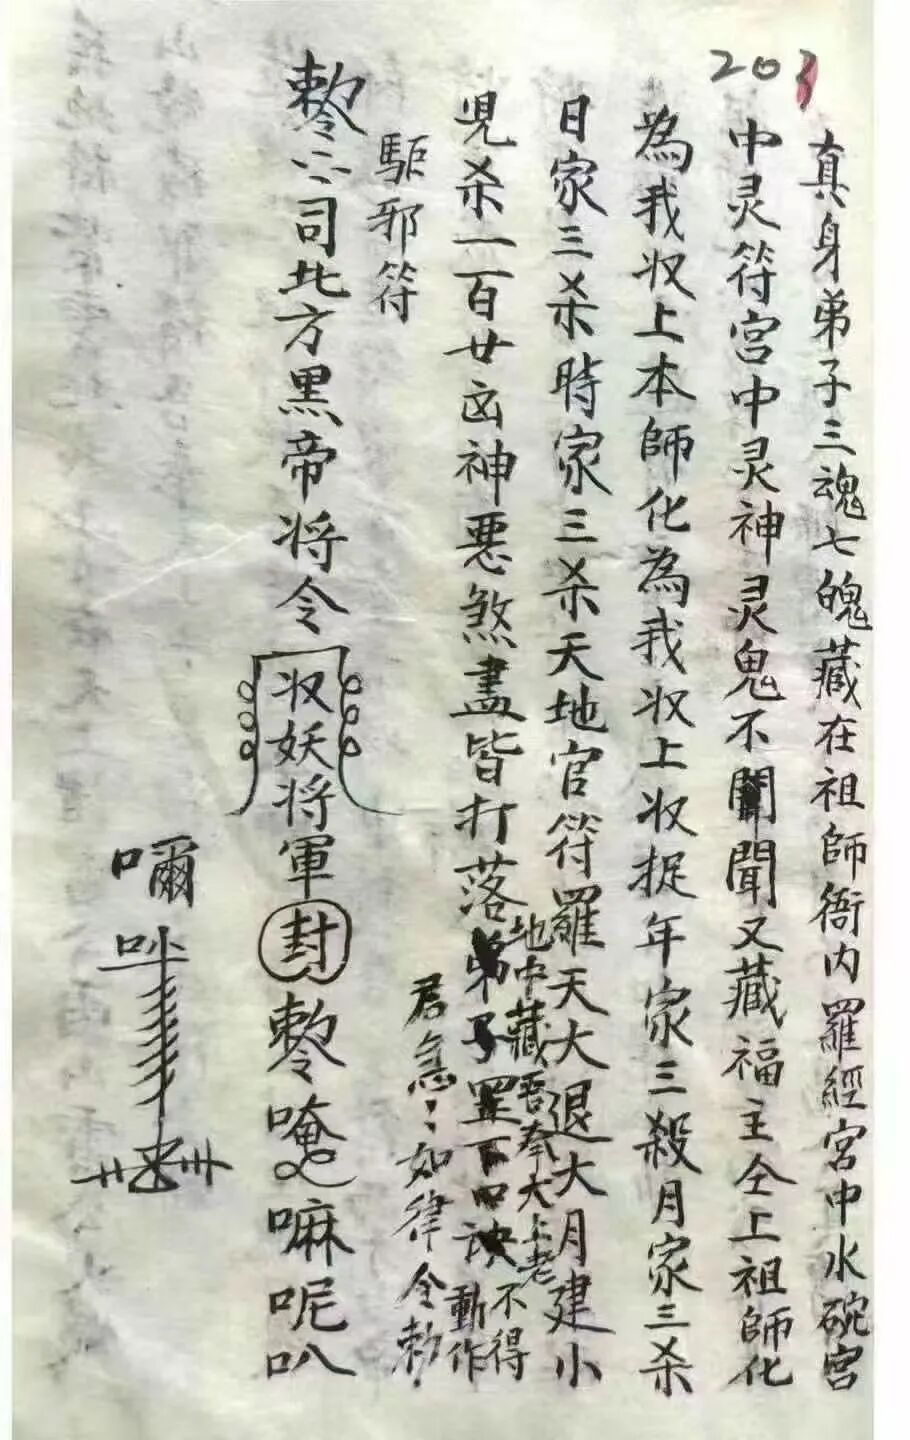 203
真身弟子三魂七魄藏在祖師衙内羅經宮中水碗宮
中灵符宮中灵神灵鬼不聞聞又藏福主仝上祖師化
為我収上本師化為我収上収捉年家三殺月家三杀
日家三杀時家三杀天地官符羅天大退大月建小
児杀一百廿凶神惡煞盡皆打落弟子罡下口诀不得動作
地中藏吾奉太上老
君急〻如律令勅
驅邪符
勅令六司北方黑帝将令収妖将軍封勅令唵嘛呢叭
嚩吽